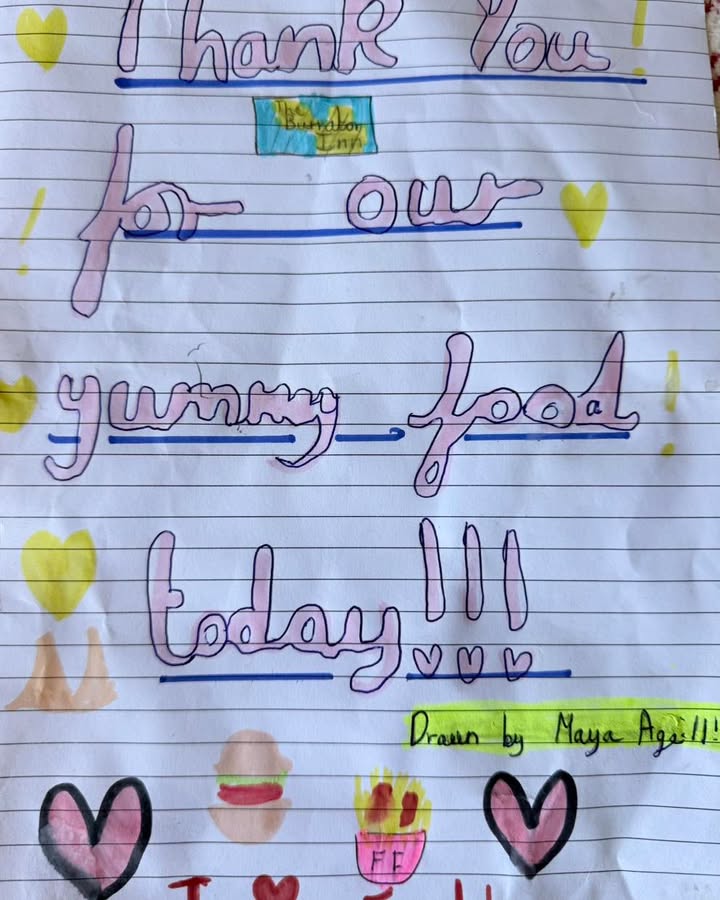 Thank You!
The
Burrator
Inn
for our
yummy food!
today!!!
Drawn by Maya Age:11!
FF